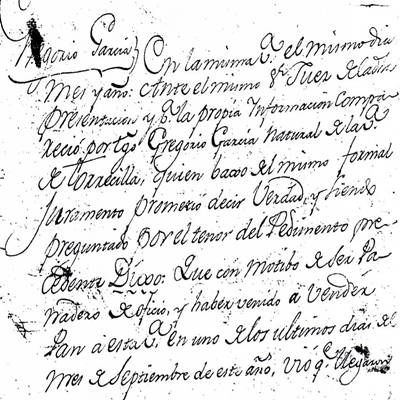 Gregorio García
En la misma V.ª el mismo dia
mes y año: Ante el mismo S.or Juez de la dha
presentacion y p.ª la propia Informacion Compa
reció por tgo Gregorio García Natural de la V.ª
de Torrecilla, quien baxo del mismo formal
Juramento prometió decir Verdad, y siendo
preguntado por el tenor del Pedimento pre
cedente Dixo: Que con motibo de ser Pa
nadero de oficio, y haber venido a Vender
Pan a esta V.ª en uno de los ultimos dias de
mes de Septiembre de este año, vió q.e llegaron